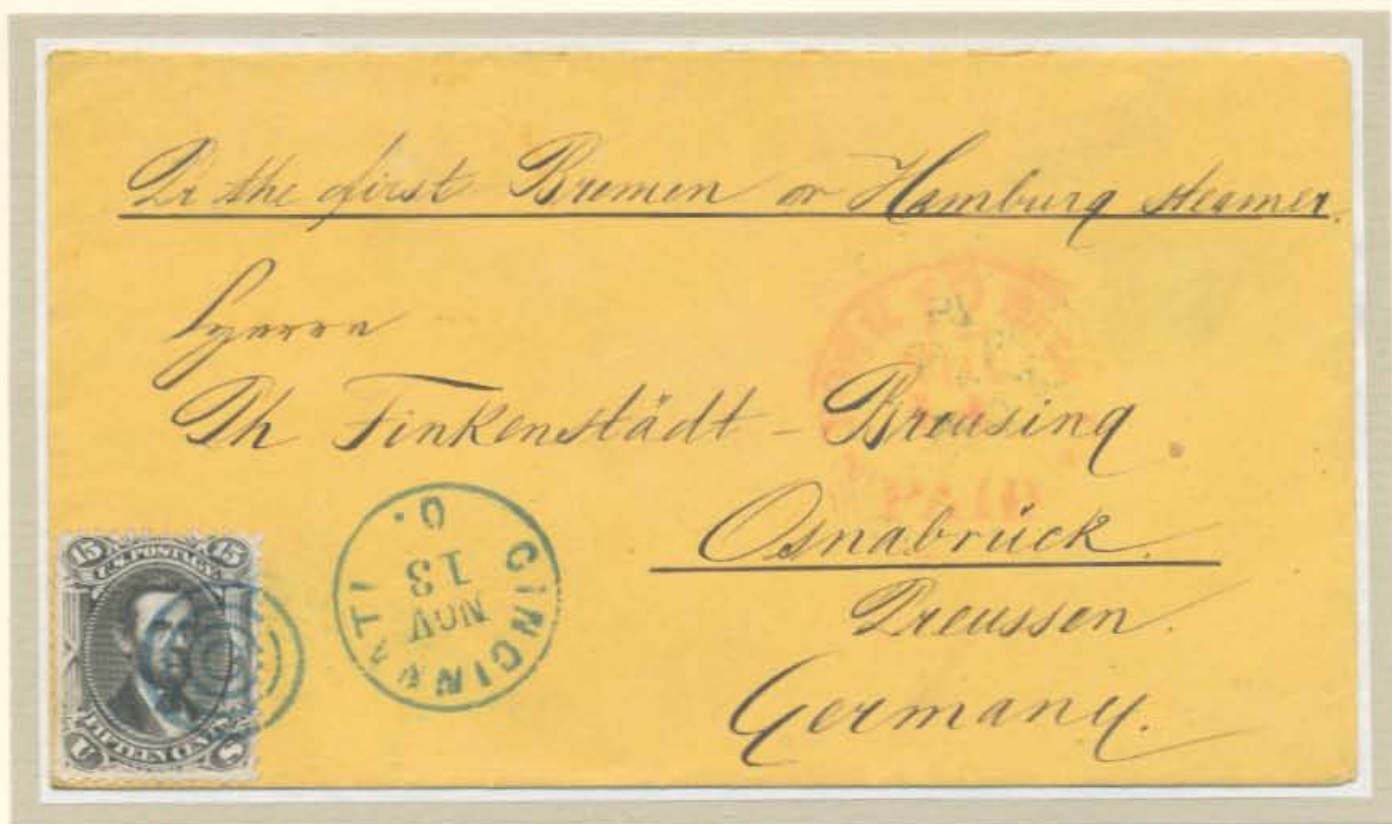 Pr the first Bremen or Hamburg steamer.
Herrn
Th Finkenstädt - Breusing
Osnabrück.
Preussen.
Germany.
CINCINNATI O.
NOV
13
15 15
U.S. POSTAGE
FIFTEEN CENTS
U S
PAID